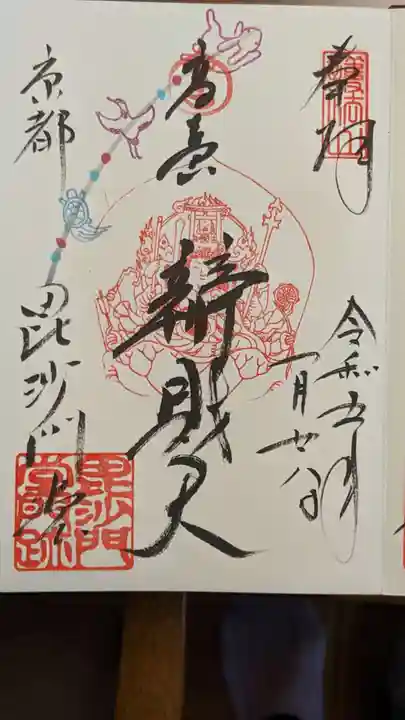 奉拝
令和五年
一月廿八日
弁財天
京都
毘沙門堂
毘沙門
堂門跡